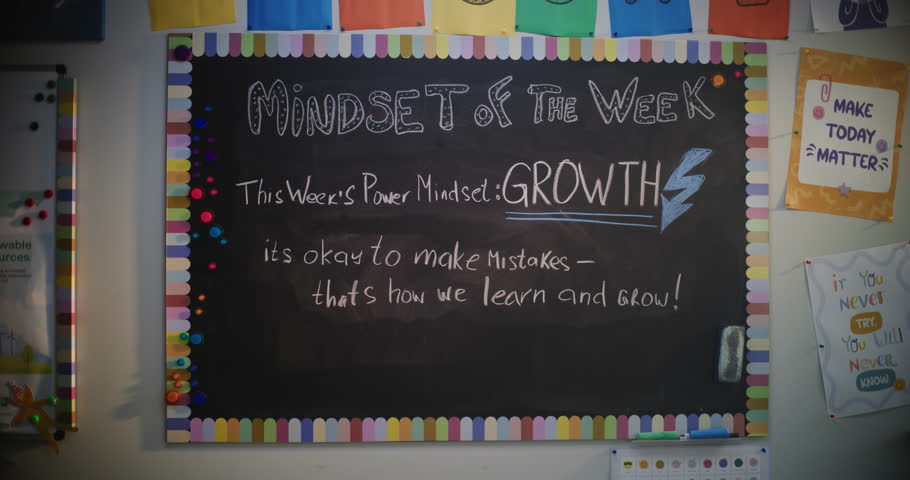 MINDSET OF THE WEEK
This Week's Power Mindset: GROWTH
its okay to make Mistakes –
thats how we learn and GROW!
MAKE
TODAY
MATTER
IF YOU
NEVER
TRY,
YOU WILL
NEVER
KNOW